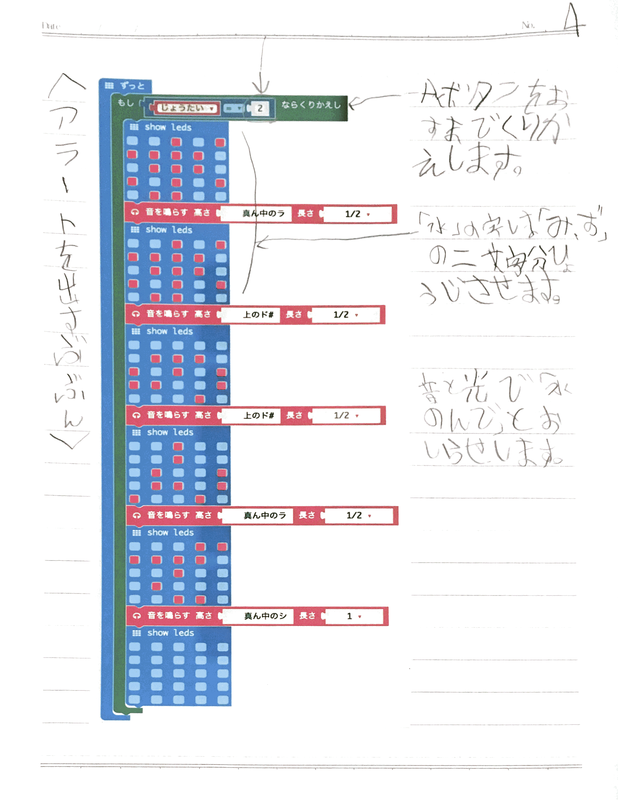 Date
No. 4
〈アラートを出すぶぶん〉
ずっと
もし じょうたい ▾ = ▾ 2 ならくりかえし
show leds
音を鳴らす 高さ 真ん中のラ 長さ 1/2 ▾
show leds
音を鳴らす 高さ 上のド# 長さ 1/2 ▾
show leds
音を鳴らす 高さ 上のド# 長さ 1/2 ▾
show leds
音を鳴らす 高さ 真ん中のラ 長さ 1/2 ▾
show leds
音を鳴らす 高さ 真ん中のシ 長さ 1 ▾
show leds
Aボタンをお
すまでくりか
えします。
「水」の字は「みず」
の二文字分ひょ
うじさせます。
音と光で「水
のんで」とお
しらせします。